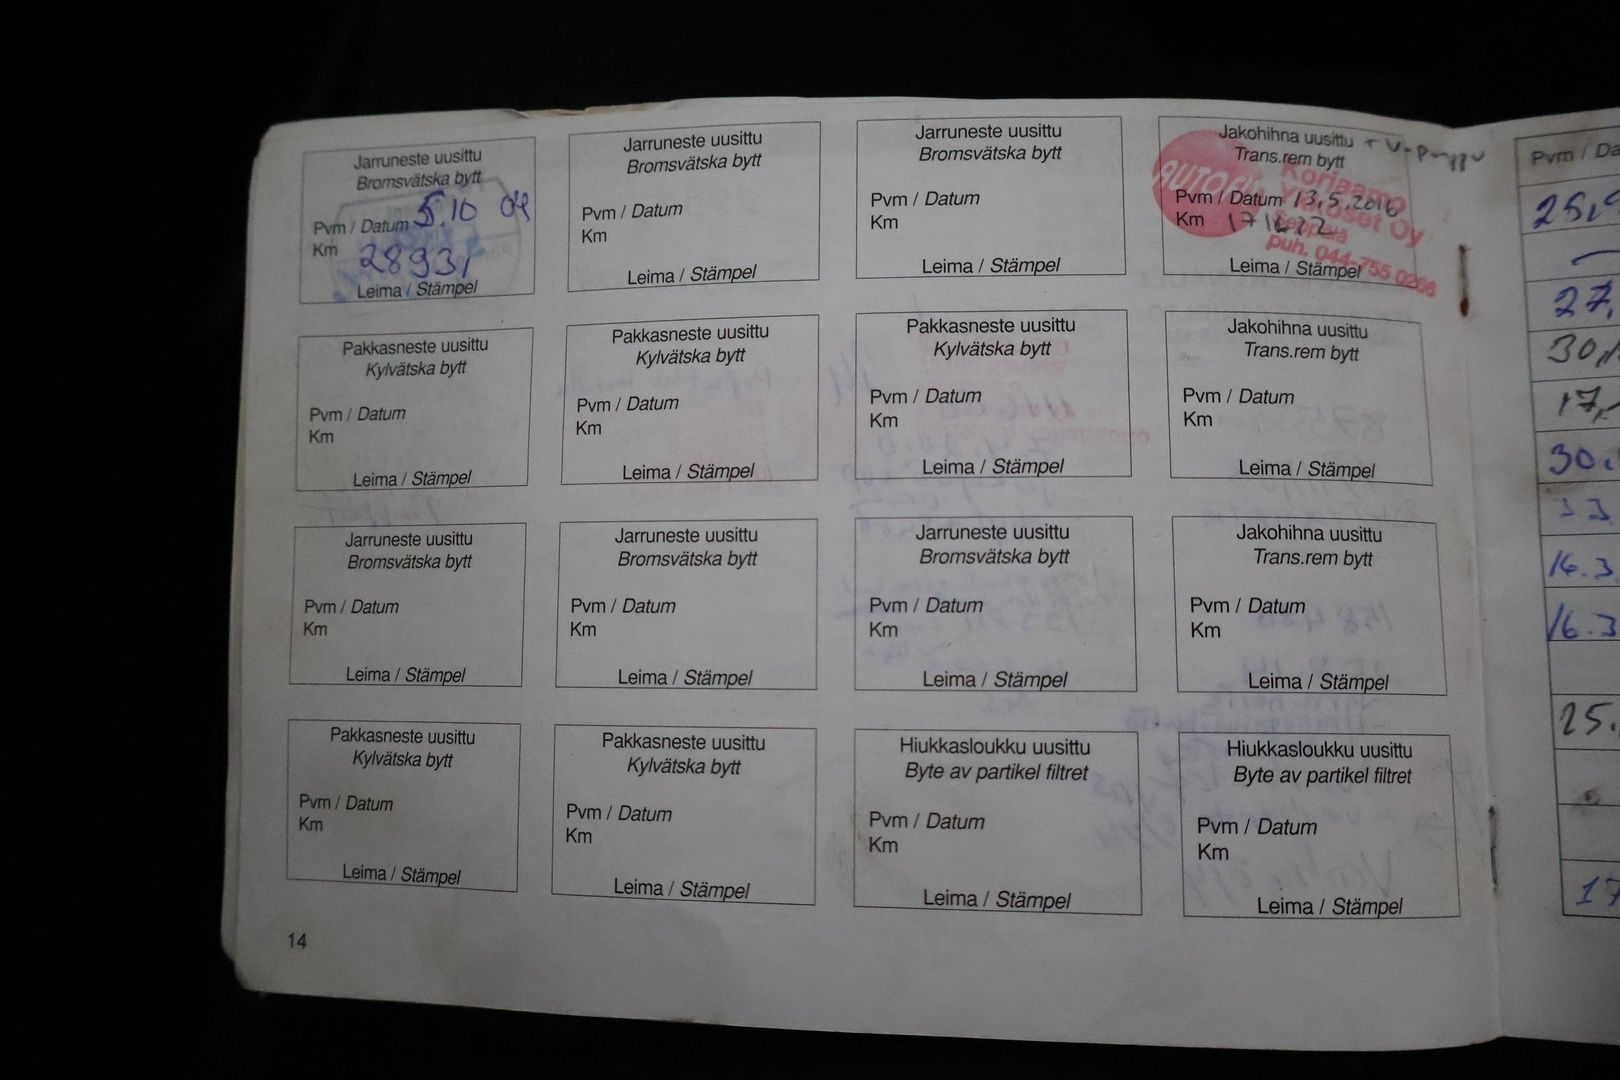 Jarruneste uusittu
Bromsvätska bytt
Pvm / Datum 5.10 04
Km 28931
Leima / Stämpel
Jarruneste uusittu
Bromsvätska bytt
Pvm / Datum
Km
Leima / Stämpel
Jarruneste uusittu
Bromsvätska bytt
Pvm / Datum
Km
Leima / Stämpel
Jakohihna uusittu + V-pumppu
Trans.rem bytt
Pvm / Datum 13.5.2016
Km
Leima / Stämpel
Korjaamo
Oy
puh. 044-755 0266
Pakkasneste uusittu
Kylvätska bytt
Pvm / Datum
Km
Leima / Stämpel
Pakkasneste uusittu
Kylvätska bytt
Pvm / Datum
Km
Leima / Stämpel
Pakkasneste uusittu
Kylvätska bytt
Pvm / Datum
Km
Leima / Stämpel
Jakohihna uusittu
Trans.rem bytt
Pvm / Datum
Km
Leima / Stämpel
Jarruneste uusittu
Bromsvätska bytt
Pvm / Datum
Km
Leima / Stämpel
Jarruneste uusittu
Bromsvätska bytt
Pvm / Datum
Km
Leima / Stämpel
Jarruneste uusittu
Bromsvätska bytt
Pvm / Datum
Km
Leima / Stämpel
Jakohihna uusittu
Trans.rem bytt
Pvm / Datum
Km
Leima / Stämpel
Pakkasneste uusittu
Kylvätska bytt
Pvm / Datum
Km
Leima / Stämpel
Pakkasneste uusittu
Kylvätska bytt
Pvm / Datum
Km
Leima / Stämpel
Hiukkasloukku uusittu
Byte av partikel filtret
Pvm / Datum
Km
Leima / Stämpel
Hiukkasloukku uusittu
Byte av partikel filtret
Pvm / Datum
Km
Leima / Stämpel
14
Pvm / Da
27.
17.
30.
3.3
16.3
16.3
25.
17